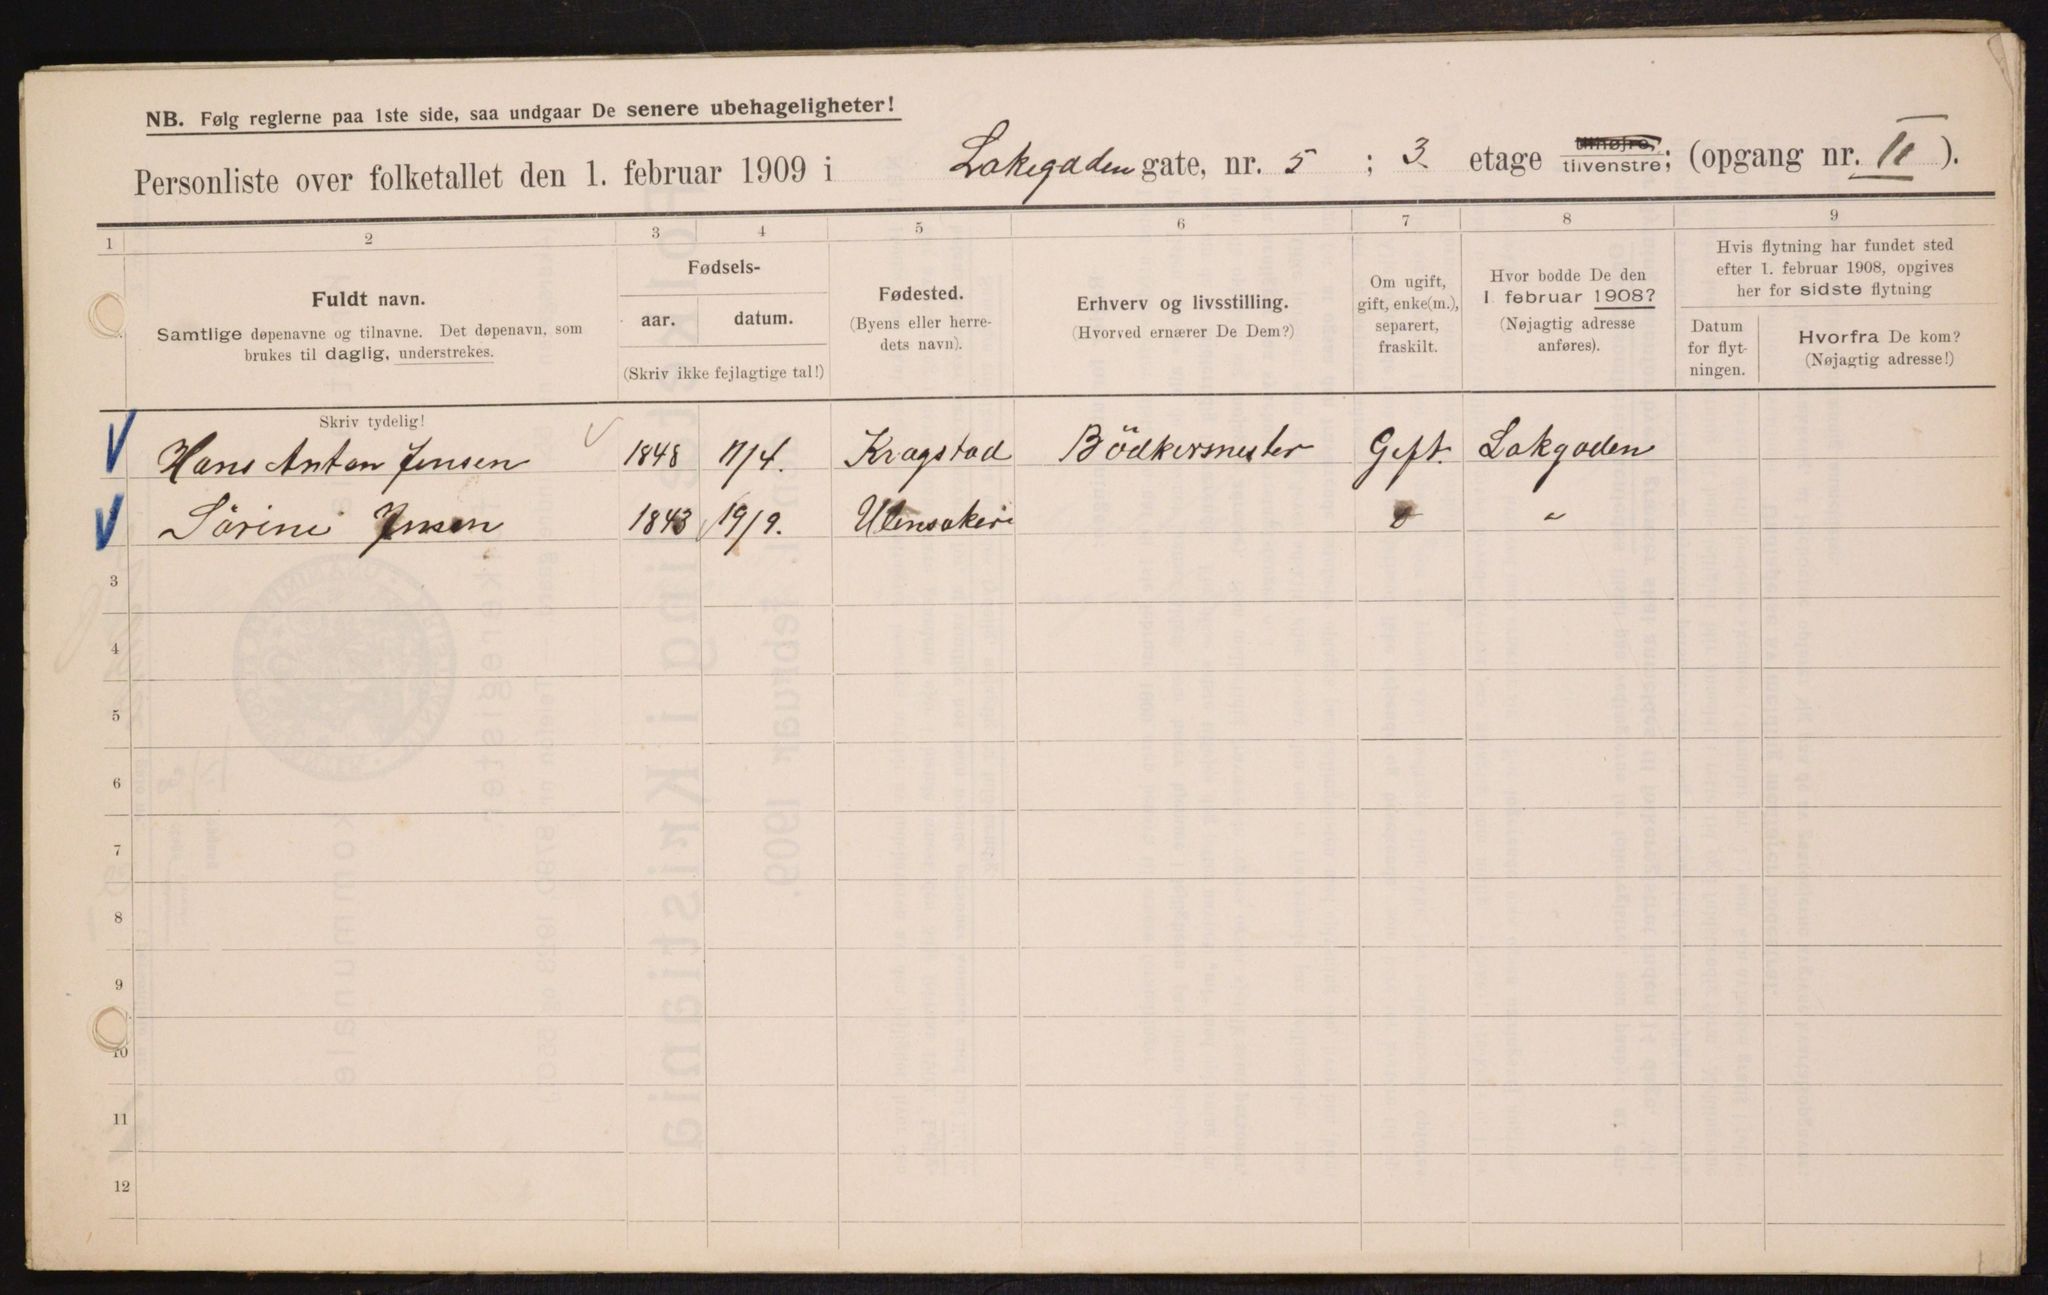 NB. Følg reglerne paa 1ste side, saa undgaar De senere ubehageligheter!
Personliste over folketallet den 1. februar 1909 i Lakegaden gate, nr. 5 ; 3 etage tilhøjre, tilvenstre; (opgang nr. II ).
1 2 3 4 5 6 7 8 9
Fuldt navn.
Samtlige døpenavne og tilnavne. Det døpenavn, som
brukes til daglig, understrekes.
Fødsels-
aar. datum.
(Skriv ikke fejlagtige tal!)
Fødested.
(Byens eller herre-
dets navn).
Erhverv og livsstilling.
(Hvorved ernærer De Dem?)
Om ugift,
gift, enke(m.),
separert,
fraskilt.
Hvor bodde De den
1. februar 1908?
(Nøjagtig adresse
anføres).
Hvis flytning har fundet sted
efter 1. februar 1908, opgives
her for sidste flytning
Datum
for flyt-
ningen.
Hvorfra De kom?
(Nøjagtig adresse!)
Skriv tydelig!
Hans Anton Jensen 1848 17/4. Kragstad Bödkermester Gift. Lakgaden
Sörine Jensen 1843 19/9. Ulensaker " "
3
4
5
6
7
8
9
10
11
12